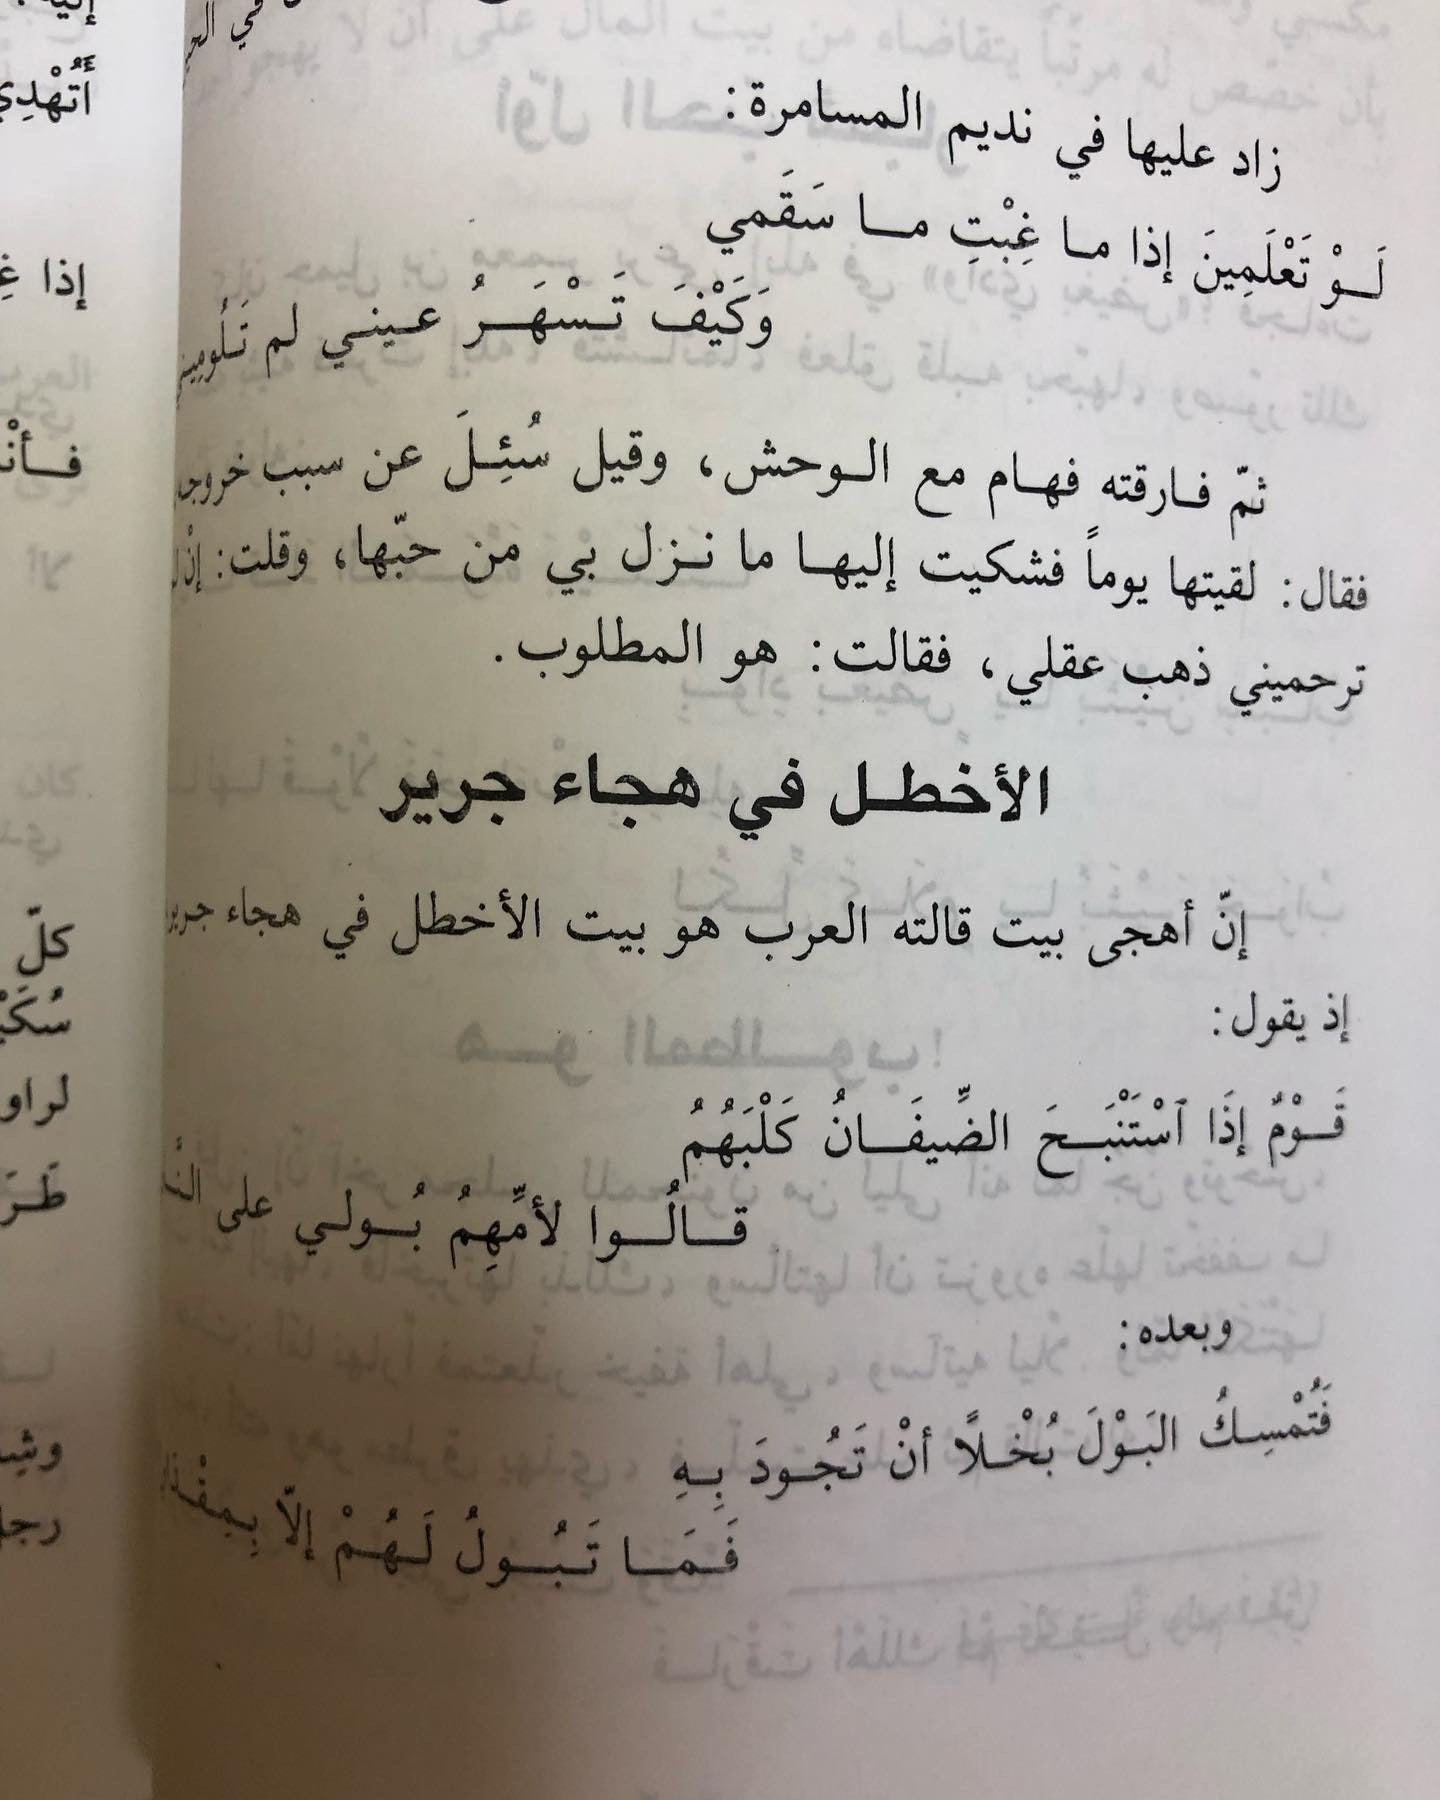 زاد عليها في نديم المسامرة:
لَـوْ تَعْلَمِينَ إذا ما غِبْتِ مـا سَقَمي
وَكَيْفَ تَـسْهَـرُ عـيني لم تَـلُومِيني
ثمّ فـارقته فهـام مع الـوحش، وقيل سُئِـلَ عن سبب
فقال: لقيتها يوماً فشكيت إليهـا ما نـزل بي من حبّها، وقلت: إنْ
ترحميني ذهب عقلي، فقالت: هو المطلوب.
الأخطـل في هجاء جرير
إنّ أهجى بيت قالته العرب هو بيت الأخطل في هجاء جرير
إذ يقول:
قَـوْمٌ إذَا ٱسْتَنْبَـحَ الضِّيفَـانُ كَلْبَهُمُ
قـالُـوا لأمِّهِمُ بُـولـي على
وبعده:
فَتُمْسِـكُ البَوْلَ بُخْـلاً أنْ تَجُـودَ بِـهِ
فَـمَـا تَـبُـولُ لَـهُـمْ إلاّ
أَتُهْدِي
إذا
كلّ